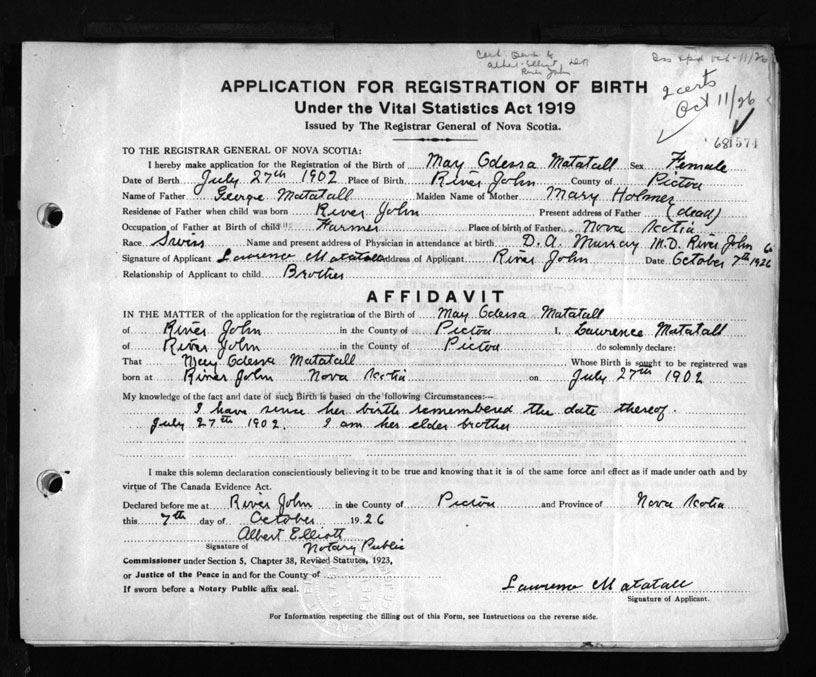 Cert Sent to
Albert Elliott
River John
Oct 11/26
2 certs
Oct 11/26
681571
APPLICATION FOR REGISTRATION OF BIRTH
Under the Vital Statistics Act 1919
Issued by The Registrar General of Nova Scotia.
TO THE REGISTRAR GENERAL OF NOVA SCOTIA:
I hereby make application for the Registration of the Birth of May Odessa Matatall Sex Female
Date of Birth July 27th 1902 Place of Birth River John County of Pictou
Name of Father George Matatall Maiden Name of Mother Mary Holmes
Residense of Father when child was born River John Present address of Father (dead)
Occupation of Father at Birth of child Farmer Place of birth of Father Nova Scotia
Race Swiss Name and present address of Physician in attendance at birth D. A. Murray M.D. River John
Signature of Applicant Lawrence Matatall Address of Applicant River John Date October 7th 1926
Relationship of Applicant to child Brother
AFFIDAVIT
IN THE MATTER of the application for the registration of the Birth of May Odessa Matatall
of River John in the County of Pictou I, Lawrence Matatall
of River John in the County of Pictou do solemnly declare:
That May Odessa Matatall Whose Birth is sought to be registered was
born at River John Nova Scotia on July 27th 1902
My knowledge of the fact and date of such Birth is based on the following Circumstances:—
I have sense her birth remembered the date thereof.
July 27th 1902. I am her elder brother
I make this solemn declaration conscientiously believing it to be true and knowing that it is of the same force and effect as if made under oath and by
virtue of The Canada Evidence Act.
Declared before me at River John in the County of Pictou and Province of Nova Scotia
this 7th day of October 1926
Albert Elliott
Signature of Notary Public
Commissioner under Section 5, Chapter 38, Revised Statutes, 1923,
or Justice of the Peace in and for the County of
If sworn before a Notary Public affix seal.
Lawrence Matatall
Signature of Applicant.
For Information respecting the filling out of this Form, see Instructions on the reverse side.